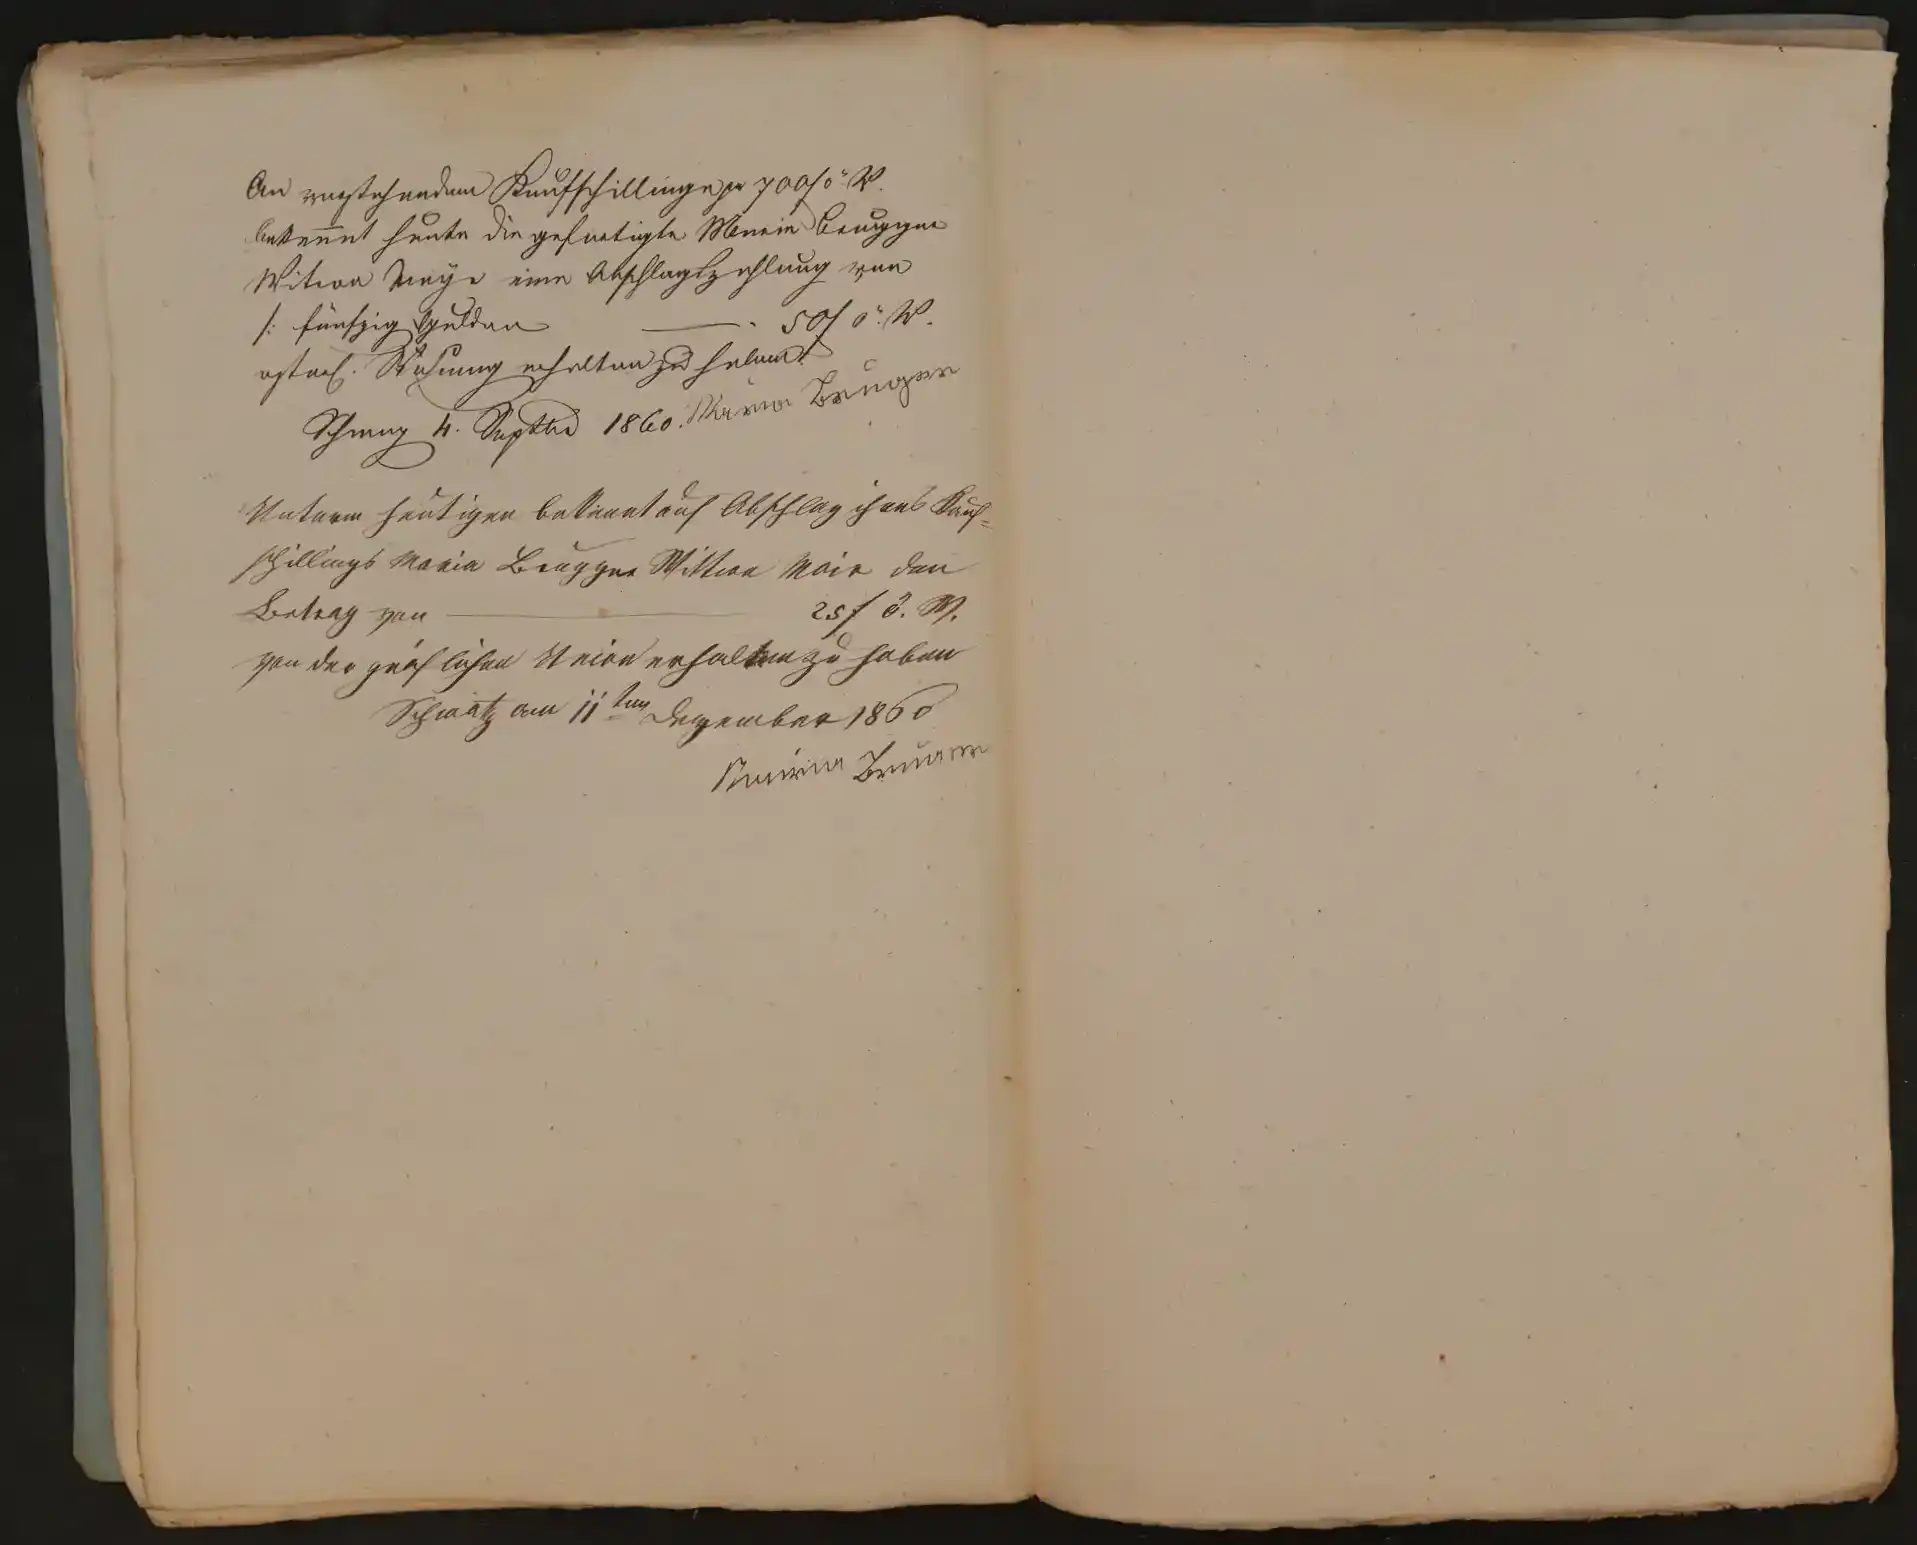 An vorstehendem Kaufschillinge pr 700 f ö. W.
bekennet heute die gefertigte Maria Brugger
Witwe Mayr eine Abschlagszahlung von
/: fünfzig Gulden — 50 f ö. W.
österr. Währung erhalten zu haben.
Schwaz 4. Septbr 1860. Maria Bruger
Unterm heutigen bekennt auf Abschlag ihres Kauf-
schillings Maria Brugger Wittwe Mair den
Betrag von — 25 f ö. W.
von der gräflichen Union erhalten zu haben
Schwatz am 11ten Dezember 1860
Maria Bruger